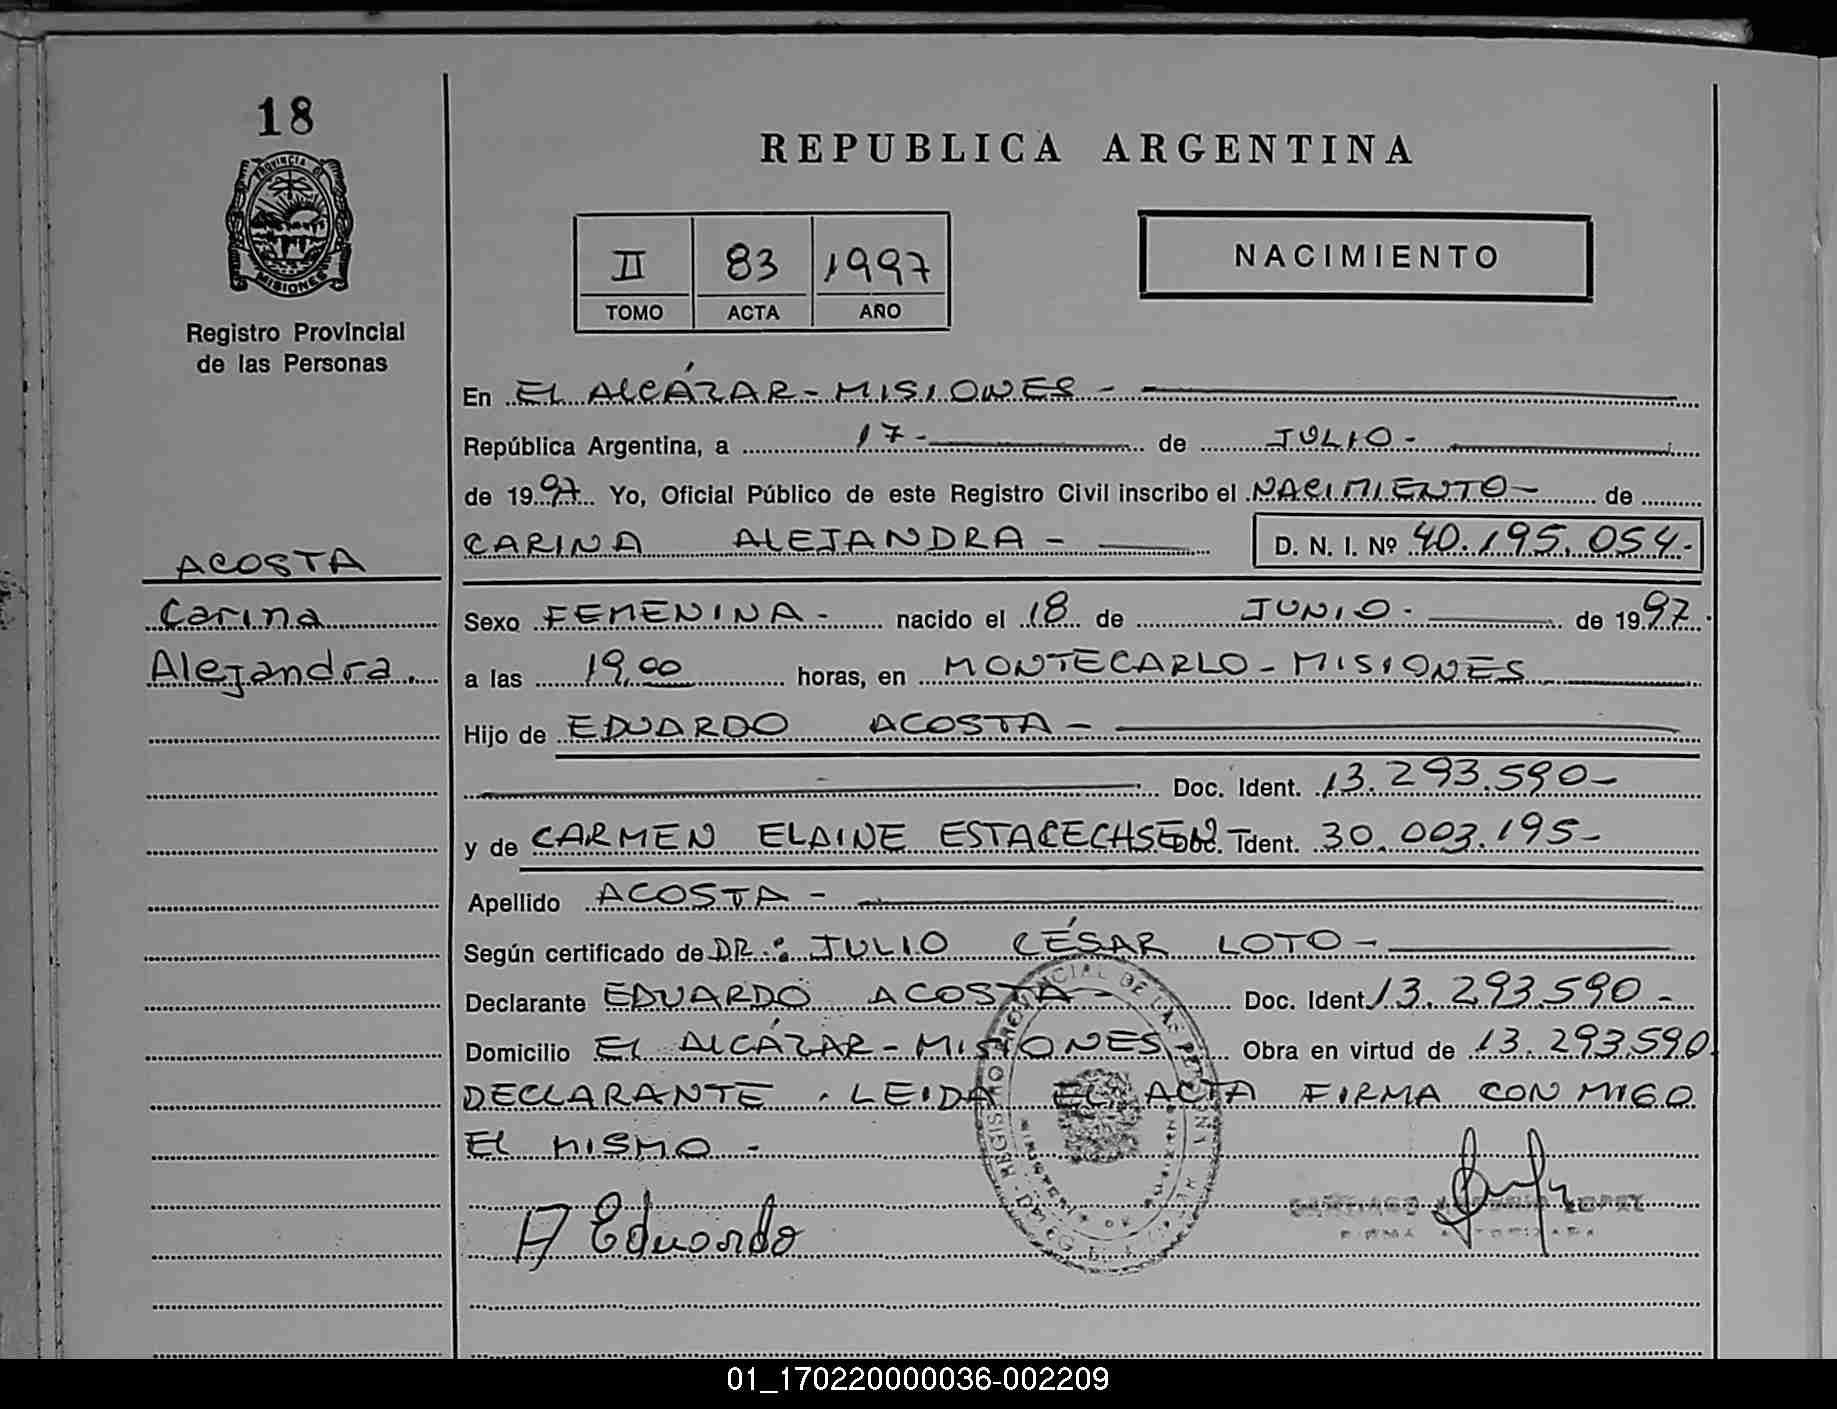 18
PROVINCIA DE
MISIONES
Registro Provincial
de las Personas
REPUBLICA ARGENTINA
II 83 1997
TOMO ACTA AÑO
NACIMIENTO
En EL ALCÁZAR - MISIONES -
República Argentina, a 17 - de JULIO -
de 1997 Yo, Oficial Público de este Registro Civil inscribo el NACIMIENTO - de
CARINA ALEJANDRA - D. N. I. Nº 40.195.054.-
ACOSTA
Carina
Alejandra.
Sexo FEMENINA - nacido el 18 de JUNIO - de 1997.
a las 19,00 horas, en MONTECARLO - MISIONES
Hijo de EDUARDO ACOSTA -
Doc. Ident. 13.293.590 -
y de CARMEN ELAINE ESTACECHSEN Doc. Ident. 30.003.195 -
Apellido ACOSTA -
Según certificado de DR.: JULIO CÉSAR LOTO -
Declarante EDUARDO ACOSTA - Doc. Ident 13.293.590 -
Domicilio EL ALCÁZAR - MISIONES Obra en virtud de 13.293.590
DECLARANTE . LEIDA EL ACTA FIRMA CON MIGO
EL MISMO -
A Eduardo
SANTIAGO LOPEZ
FIRMA AUTORIZADA
REGISTRO PROVINCIAL DE LAS PERSONAS
01_170220000036-002209